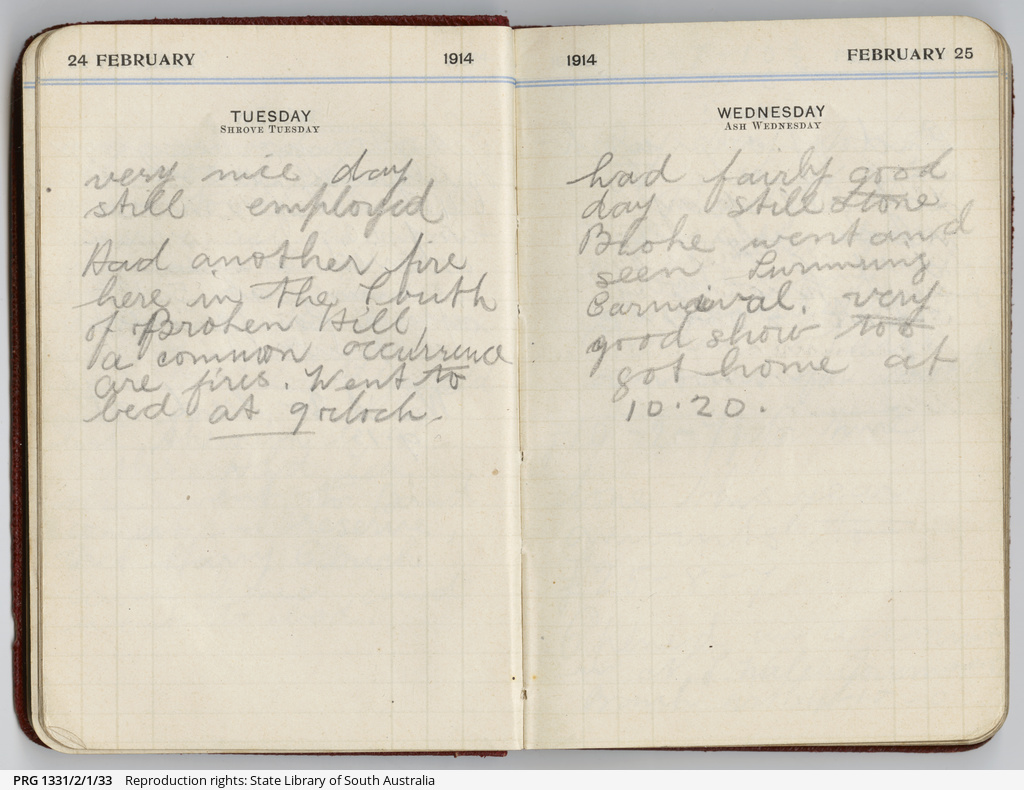 24 FEBRUARY 1914
TUESDAY
SHROVE TUESDAY
very nice day
still employed
Had another fire
here in the South
of Broken Hill
a common occurrence
are fires. Went to
bed at 9 oclock.
1914 FEBRUARY 25
WEDNESDAY
ASH WEDNESDAY
had fairly good
day still stone
Broke went and
seen Swimming
Carnaival. very
good show too
got home at
10.20.
PRG 1331/2/1/33 Reproduction rights: State Library of South Australia